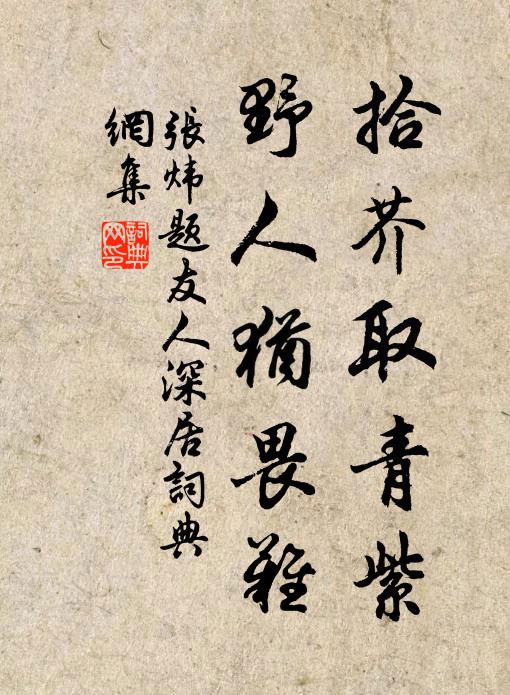 拾芥取青紫
野人猶畏難
張煒題友人深居詞典
網集
詞典
网印